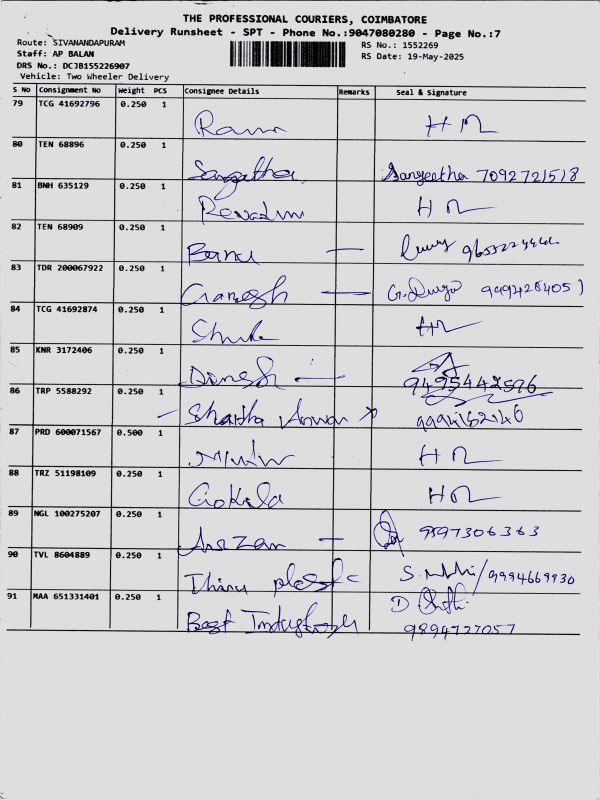 THE PROFESSIONAL COURIERS, COIMBATORE
Delivery Runsheet - SPT - Phone No.:9047080280 - Page No.:7
Route: SIVANANDAPURAM
Staff: AP BALAN
DRS No.: DCJB155226907
Vehicle: Two Wheeler Delivery
RS No.: 1552269
RS Date: 19-May-2025
S No Consignment No Weight PCS Consignee Details Remarks Seal & Signature
79 TCG 41692796 0.250 1
80 TEN 68896 0.250 1 Sangeetha 7092721518
81 BNH 635129 0.250 1
82 TEN 68909 0.250 1 Banu
83 TDR 200067922 0.250 1 Ganesh G. Durga 9994284051
84 TCG 41692874 0.250 1
85 KNR 3172406 0.250 1 Dinesh 9495442596
86 TRP 5588292 0.250 1 9994162146
87 PRD 600071567 0.500 1
88 TRZ 51198109 0.250 1 Gokila
89 NGL 100275207 0.250 1 9597306363
90 TVL 8604889 0.250 1 9994669930
91 MAA 651331401 0.250 1 Best 9894727057